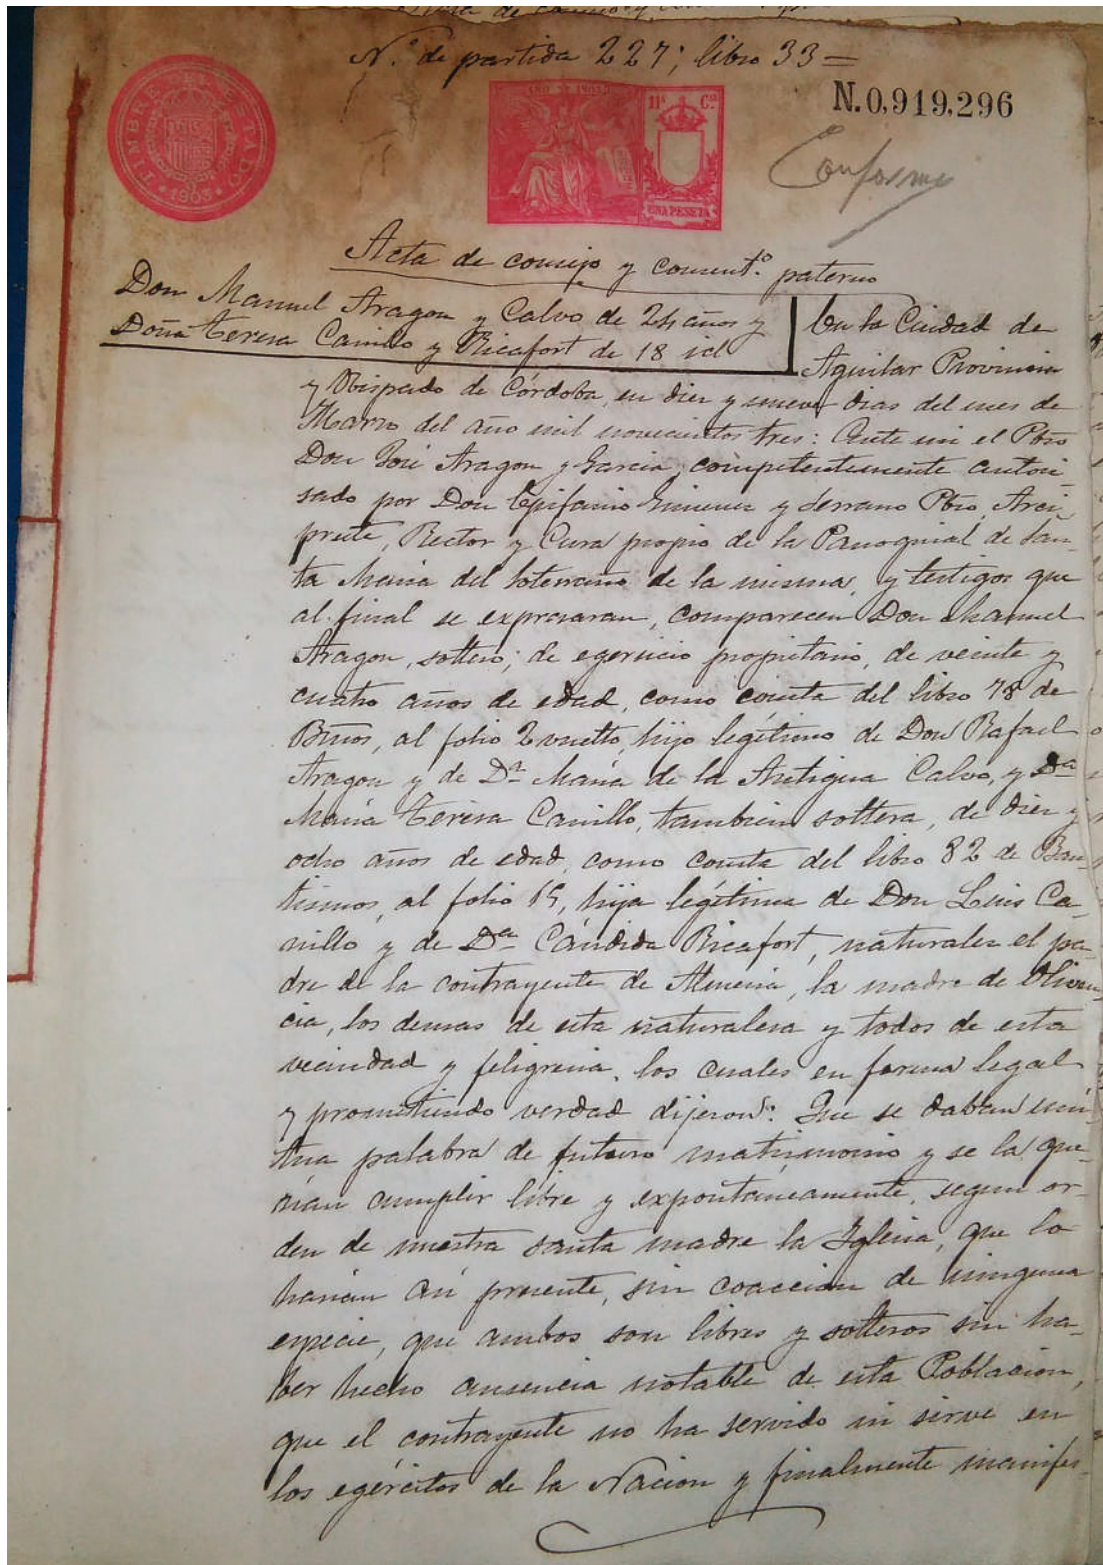 N.º de partida 227; libro 33=
TIMBRE DEL ESTADO
1903
AÑO DE 1903
11ª Cª
UNA PESETA
N.0,919,296
Conforme
Acta de consejo y consent.º paterno
Don Manuel Aragon y Calvo de 24 años y
Doña Teresa Carrillo y Ricafort de 18 id
En la Ciudad de
Aguilar Provincia
y Obispado de Córdoba, en diez y nueve dias del mes de
Marzo del año mil novecientos tres: Ante mi el Pbro
Don José Aragon y Garcia, competentemente autori-
sado por Don Epifanio Gimenez y Serrano Pbro, Arci-
preste, Rector y Cura propio de la Parroquial de San-
ta Maria del Soterraño de la misma, y testigos que
al final se expresaran, comparecen Don Manuel
Aragon, soltero, de egercicio propietario, de veinte y
cuatro años de edad, como consta del libro 78 de
Btmos, al folio 2 vuelto, hijo legítimo de Don Rafael
Aragon y de Dª María de la Antigua Calvo, y Dª
María Teresa Carrillo, tambien soltera, de diez y
ocho años de edad, como consta del libro 82 de Bau-
tismos, al folio 15, hija legítima de Don Luis Ca-
rrillo y de Dª Cándida Ricafort, naturales el pa-
dre de la contrayente de Almeria, la madre de Oliven-
cia, los demas de esta naturalesa y todos de esta
vecindad y feligresia, los cuales en forma legal
y prometiendo verdad dijeron: Que se daban mú-
tua palabra de futuro matrimonio y se la que-
rian cumplir libre y expontaneamente, segun or-
den de nuestra santa madre la Iglesia, que lo
harian asi presente, sin coaccion de ninguna
especie, que ambos son libres y solteros sin ha-
ber hecho ausencia notable de esta Poblacion,
que el contrayente no ha servido ni sirve en
los egércitos de la Nacion y finalmente manifes-